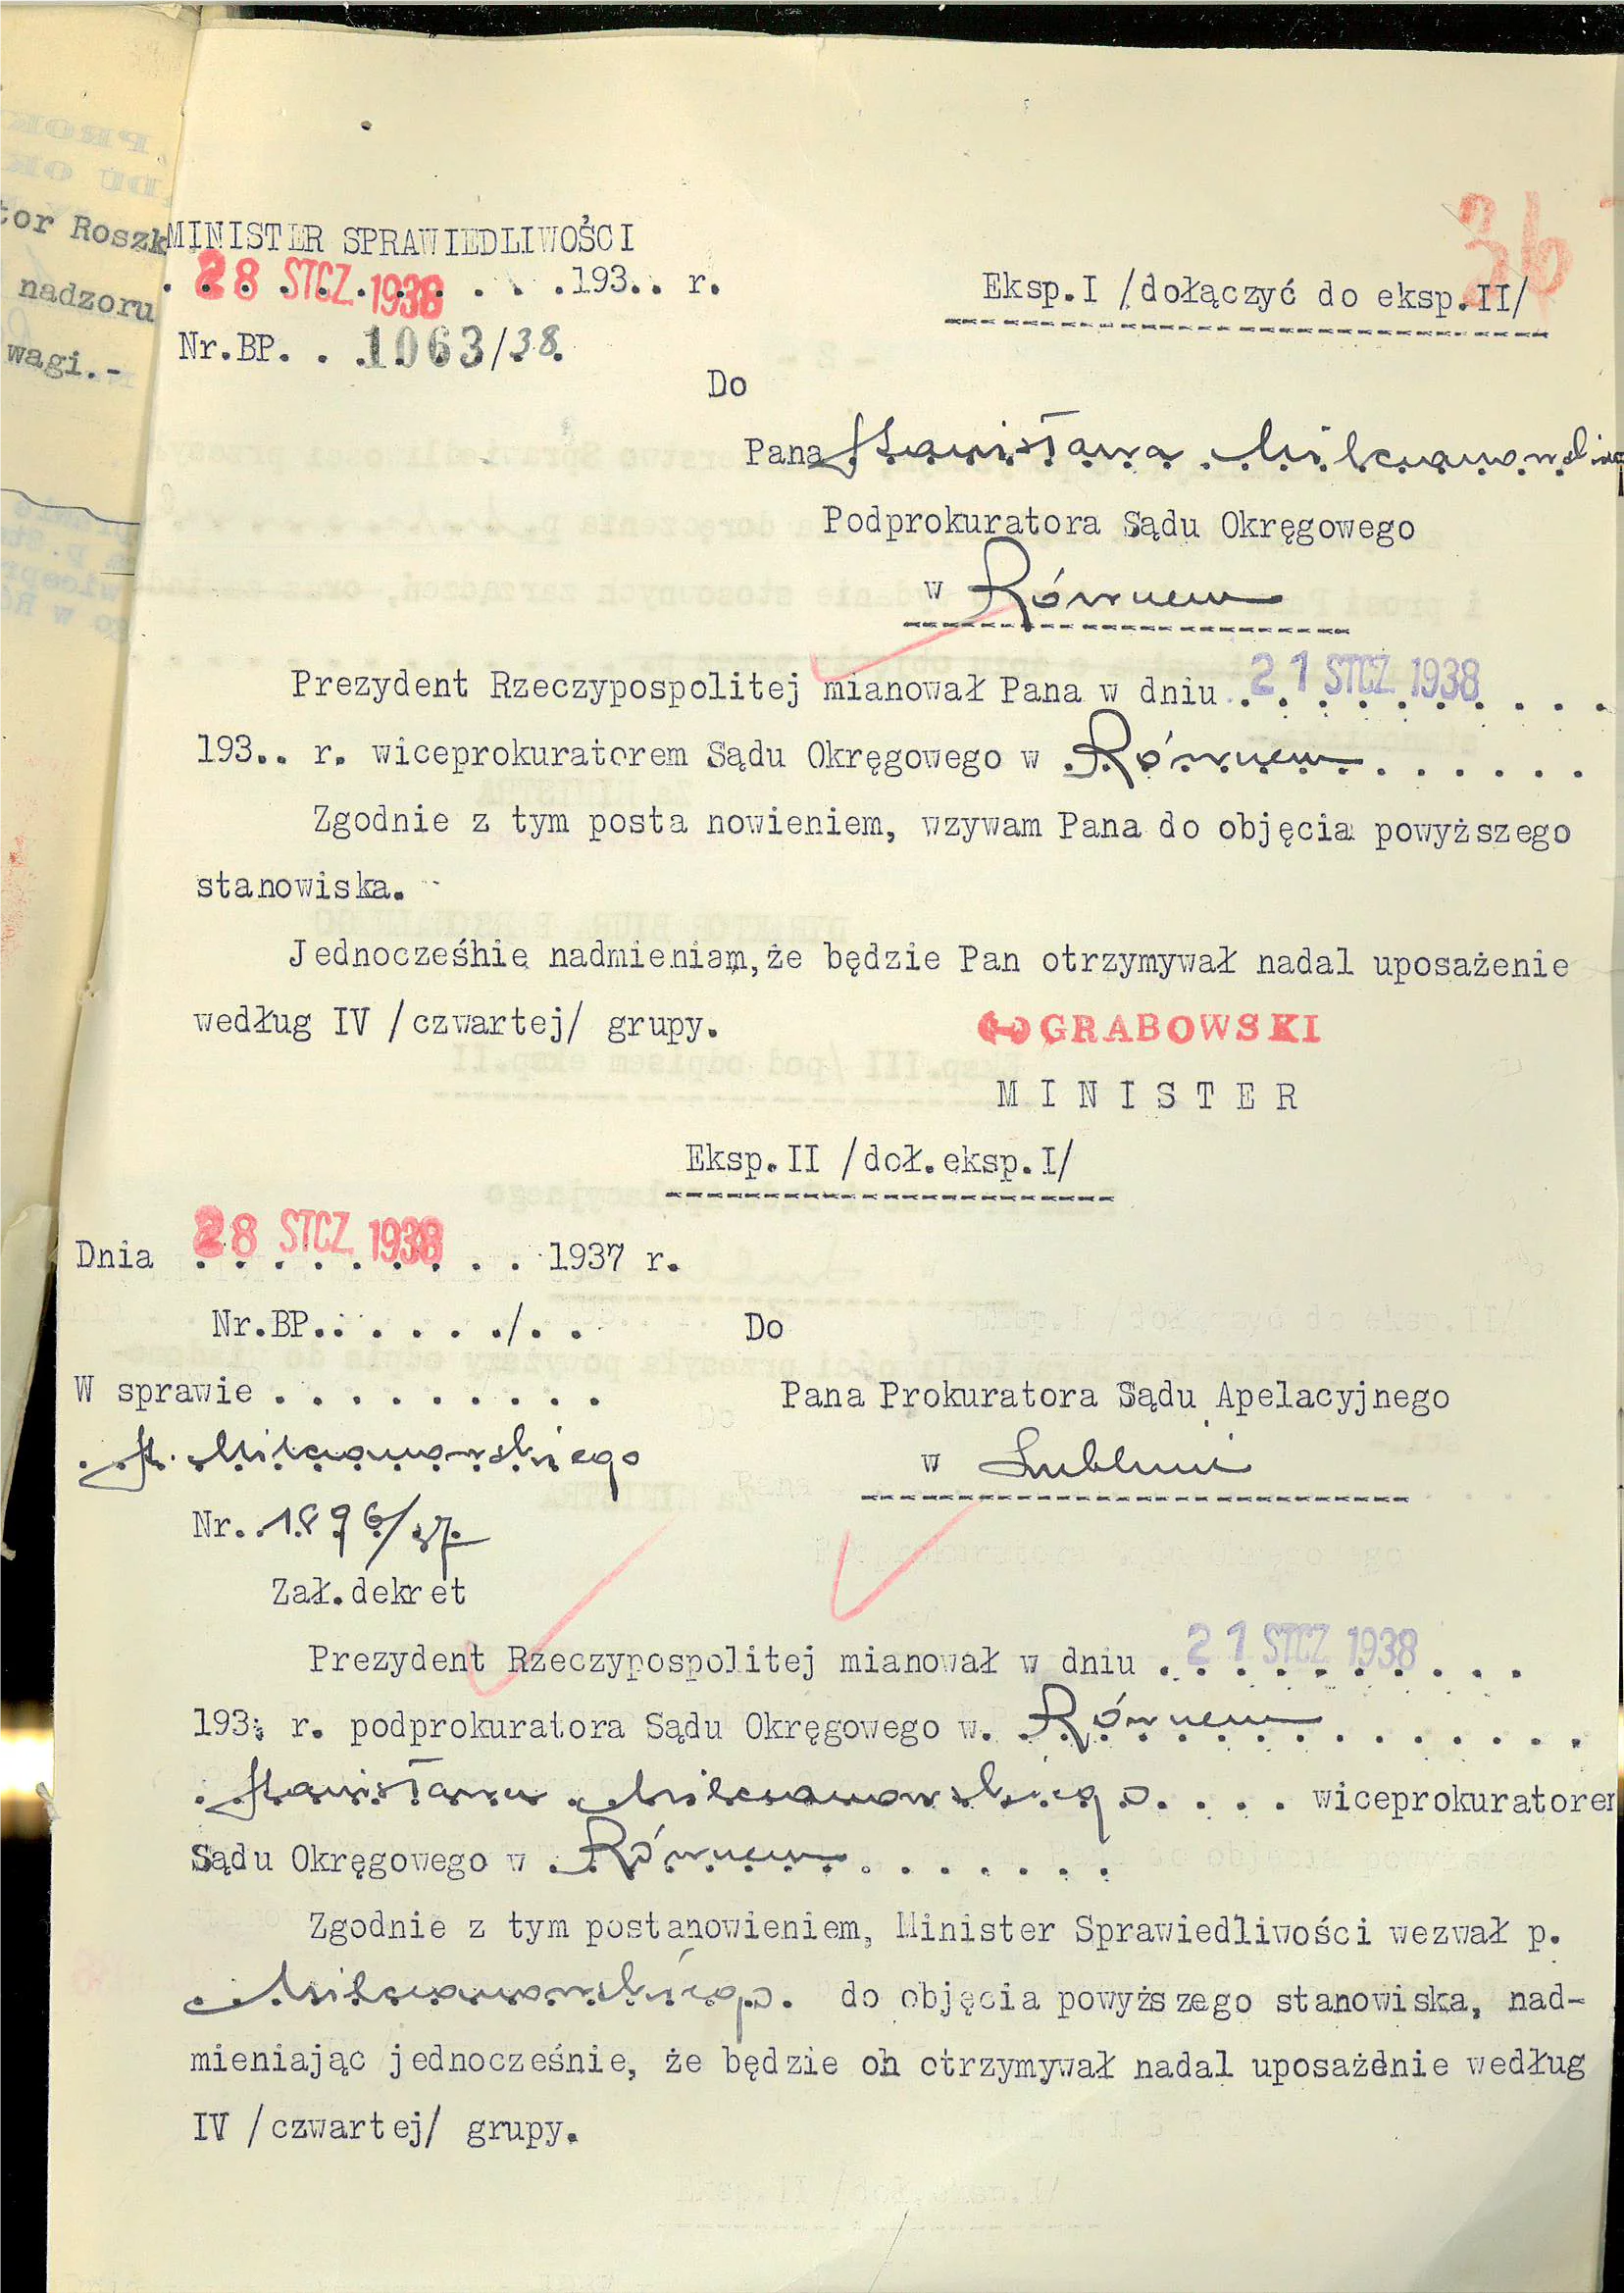 36
tor Roszk
nadzoru
wagi.-
MINISTER SPRAWIEDLIWOŚCI
28 STCZ. 1938 . . . .193.. r.
Eksp.I /dołączyć do eksp.II/
Nr.BP. . .1063/38.
Do
Pana Stanisława
Podprokuratora Sądu Okręgowego
w Równem
Prezydent Rzeczypospolitej mianował Pana w dniu 21 STCZ. 1938
193.. r. wiceprokuratorem Sądu Okręgowego w Równem. . . . . .
Zgodnie z tym posta nowieniem, wzywam Pana do objęcia powyższego
stanowiska.
Jednocześhie nadmieniam,że będzie Pan otrzymywał nadal uposażenie
według IV /czwartej/ grupy.
(-) GRABOWSKI
M I N I S T E R
Eksp.II /doł.eksp.I/
Dnia 28 STCZ 1938 . . 1937 r.
Nr.BP.. . . . . ./. .
Do
W sprawie . . . . . . . . .
Pana Prokuratora Sądu Apelacyjnego
St. Milczanowskiego
w Lublinie
Nr. 1896/37
Zał.dekret
Prezydent Rzeczypospolitej mianował w dniu 21 STCZ 1938 . . .
193. r. podprokuratora Sądu Okręgowego w. Równem . . . . . . .
Stanisława Milczanowskiego. . . . wiceprokuratorem
Sądu Okręgowego w Równem. . . . . . .
Zgodnie z tym postanowieniem, Minister Sprawiedliwości wezwał p.
Milczanowskiego. do objęcia powyższego stanowiska, nad-
mieniając jednocześnie, że będzie on otrzymywał nadal uposażenie według
IV /czwartej/ grupy.